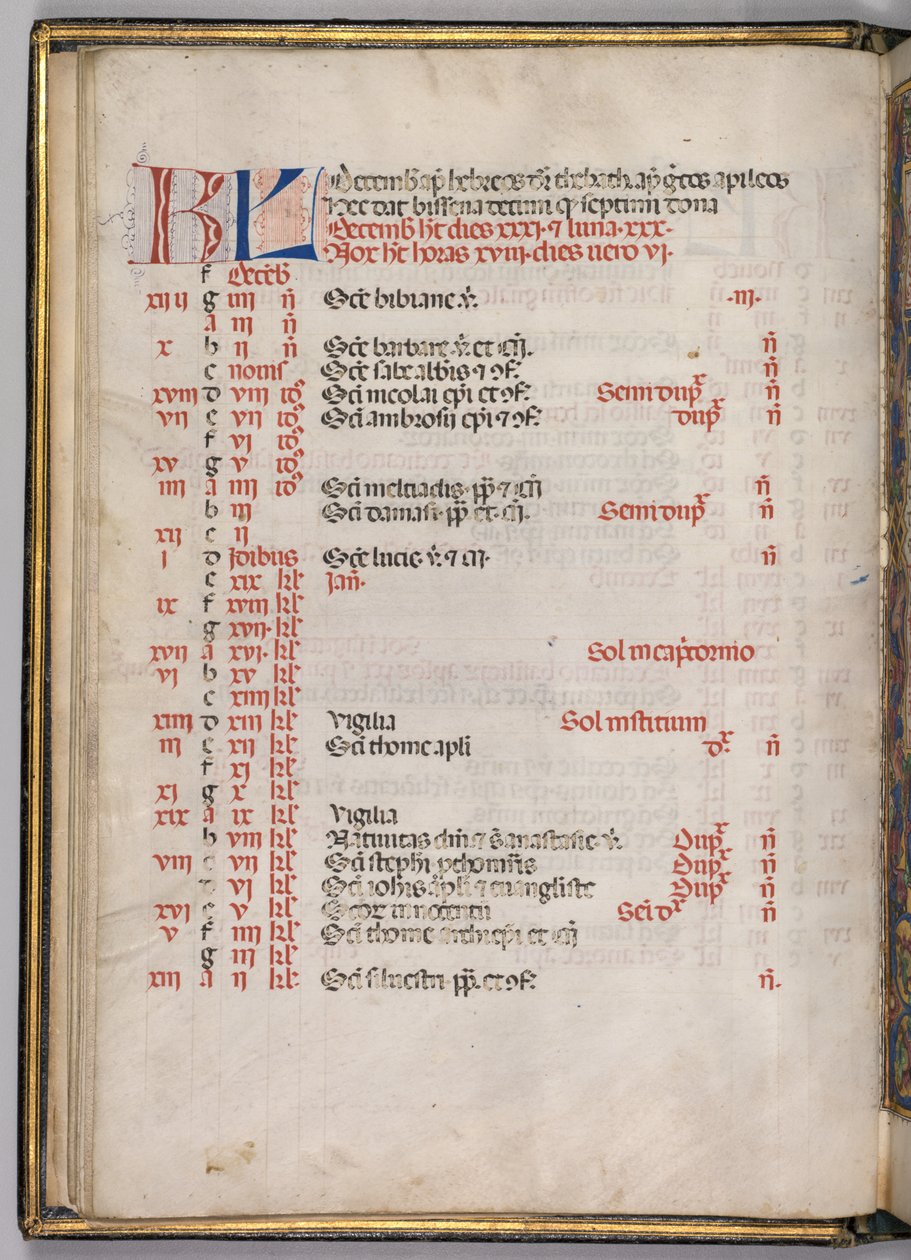 KL Decemb ap hebreos dr thebath. ap grecos apileos
Nec dat bissena decimi q septimi dona
Decemb ht dies xxxj · ⁊ luna · xxx ·
Nox ht horas xviij · dies uero vj ·
f Decēb
xiij g iiij ñ Scē bibiane v̄. ·iij·
a iij ñ
x b ij ñ Scē barbare v̄. et m̄. ñ
c nonis Scē sabe abb̄is ⁊ ↄf. ñ
xviij d viij id' Scī nicolai ep̄i et ↄf. Semi dup̄x ñ
vij e vij id' Scī ambrosij ep̄i ⁊ ↄf. dup̄x ñ
f vj id'
xv g v id'
iiij a iiij id' Scī melciadis · pp̄ ⁊ m̄ ñ
b iij Scī damasi · pp̄ et · ↄ. Semi dup̄x ñ
xij c ij
j d Jdibus Scē lucie · v̄. ⁊ m̄. ñ
e xix kl' Jan̄.
ix f xviij kl'
g xvij · kl'
xvij a xvj · kl' Sol in cap̄cornio
vj b xv kl'
c xiiij kl'
xiiij d xiij kl' vigilia Sol institium
iij e xij kl' Scī thome apl̄i dx. ñ
f xj kl'
xj g x kl'
xix a ix kl' vigilia
b viij kl' Natiuitas dn̄i ⁊ s̄ anastasie · v̄. Dup̄x ñ
viij c vij kl' Scī steph̄i · ꝓthom̄ris Dup̄x ñ
d vj kl' Scī ioh̄is ap̄li ⁊ euangliste Dup̄x ñ
xvj e v kl' Scōr innocentū Sēi dx ñ
v f iiij kl' Scī thome archiep̄i et m̄
g iij kl'
xiij a ij kl' Scī siluestri · pp̄. et ↄf. ñ.